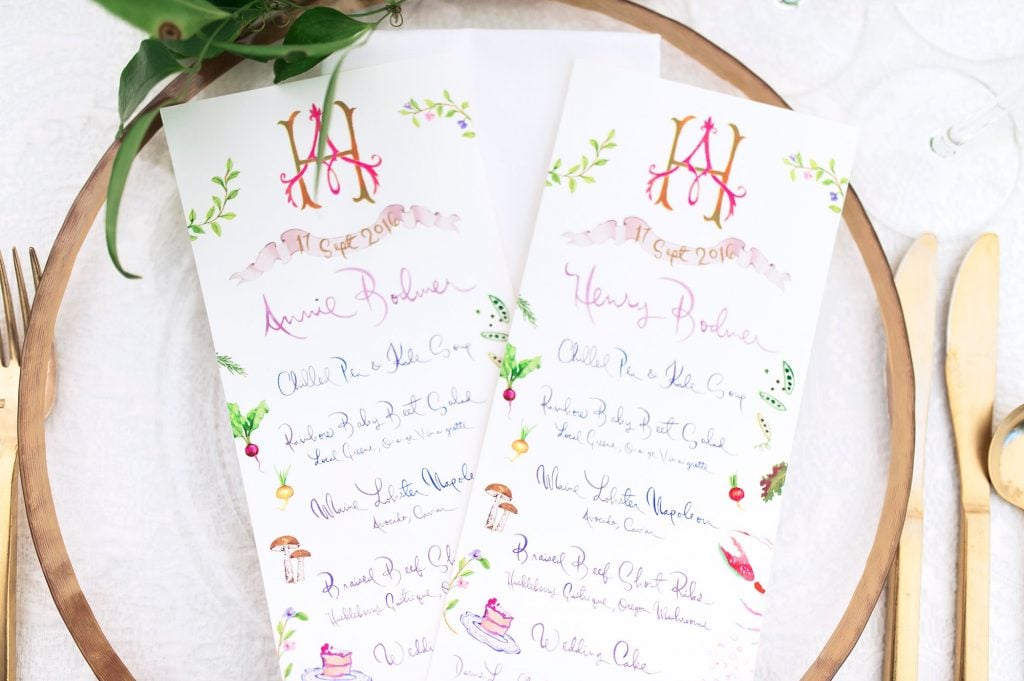 AH
17 Sept 2016
Annie Bodmer
Chilled Pea & Kale Soup
Rainbow Baby Beet Salad
Local Greens, Orange Vinaigrette
Maine Lobster Napoleon
Avocado, Caviar
Braised Beef Sh
Huckleberry Gastrique,
Weddi
AH
17 Sept 2016
Henry Bodmer
Chilled Pea & Kale Soup
Rainbow Baby Beet Salad
Local Greens, Orange Vinaigrette
Maine Lobster Napoleon
Avocado, Caviar
Braised Beef Short Ribs
Huckleberry Gastrique, Oregon Mushrooms
Wedding Cake